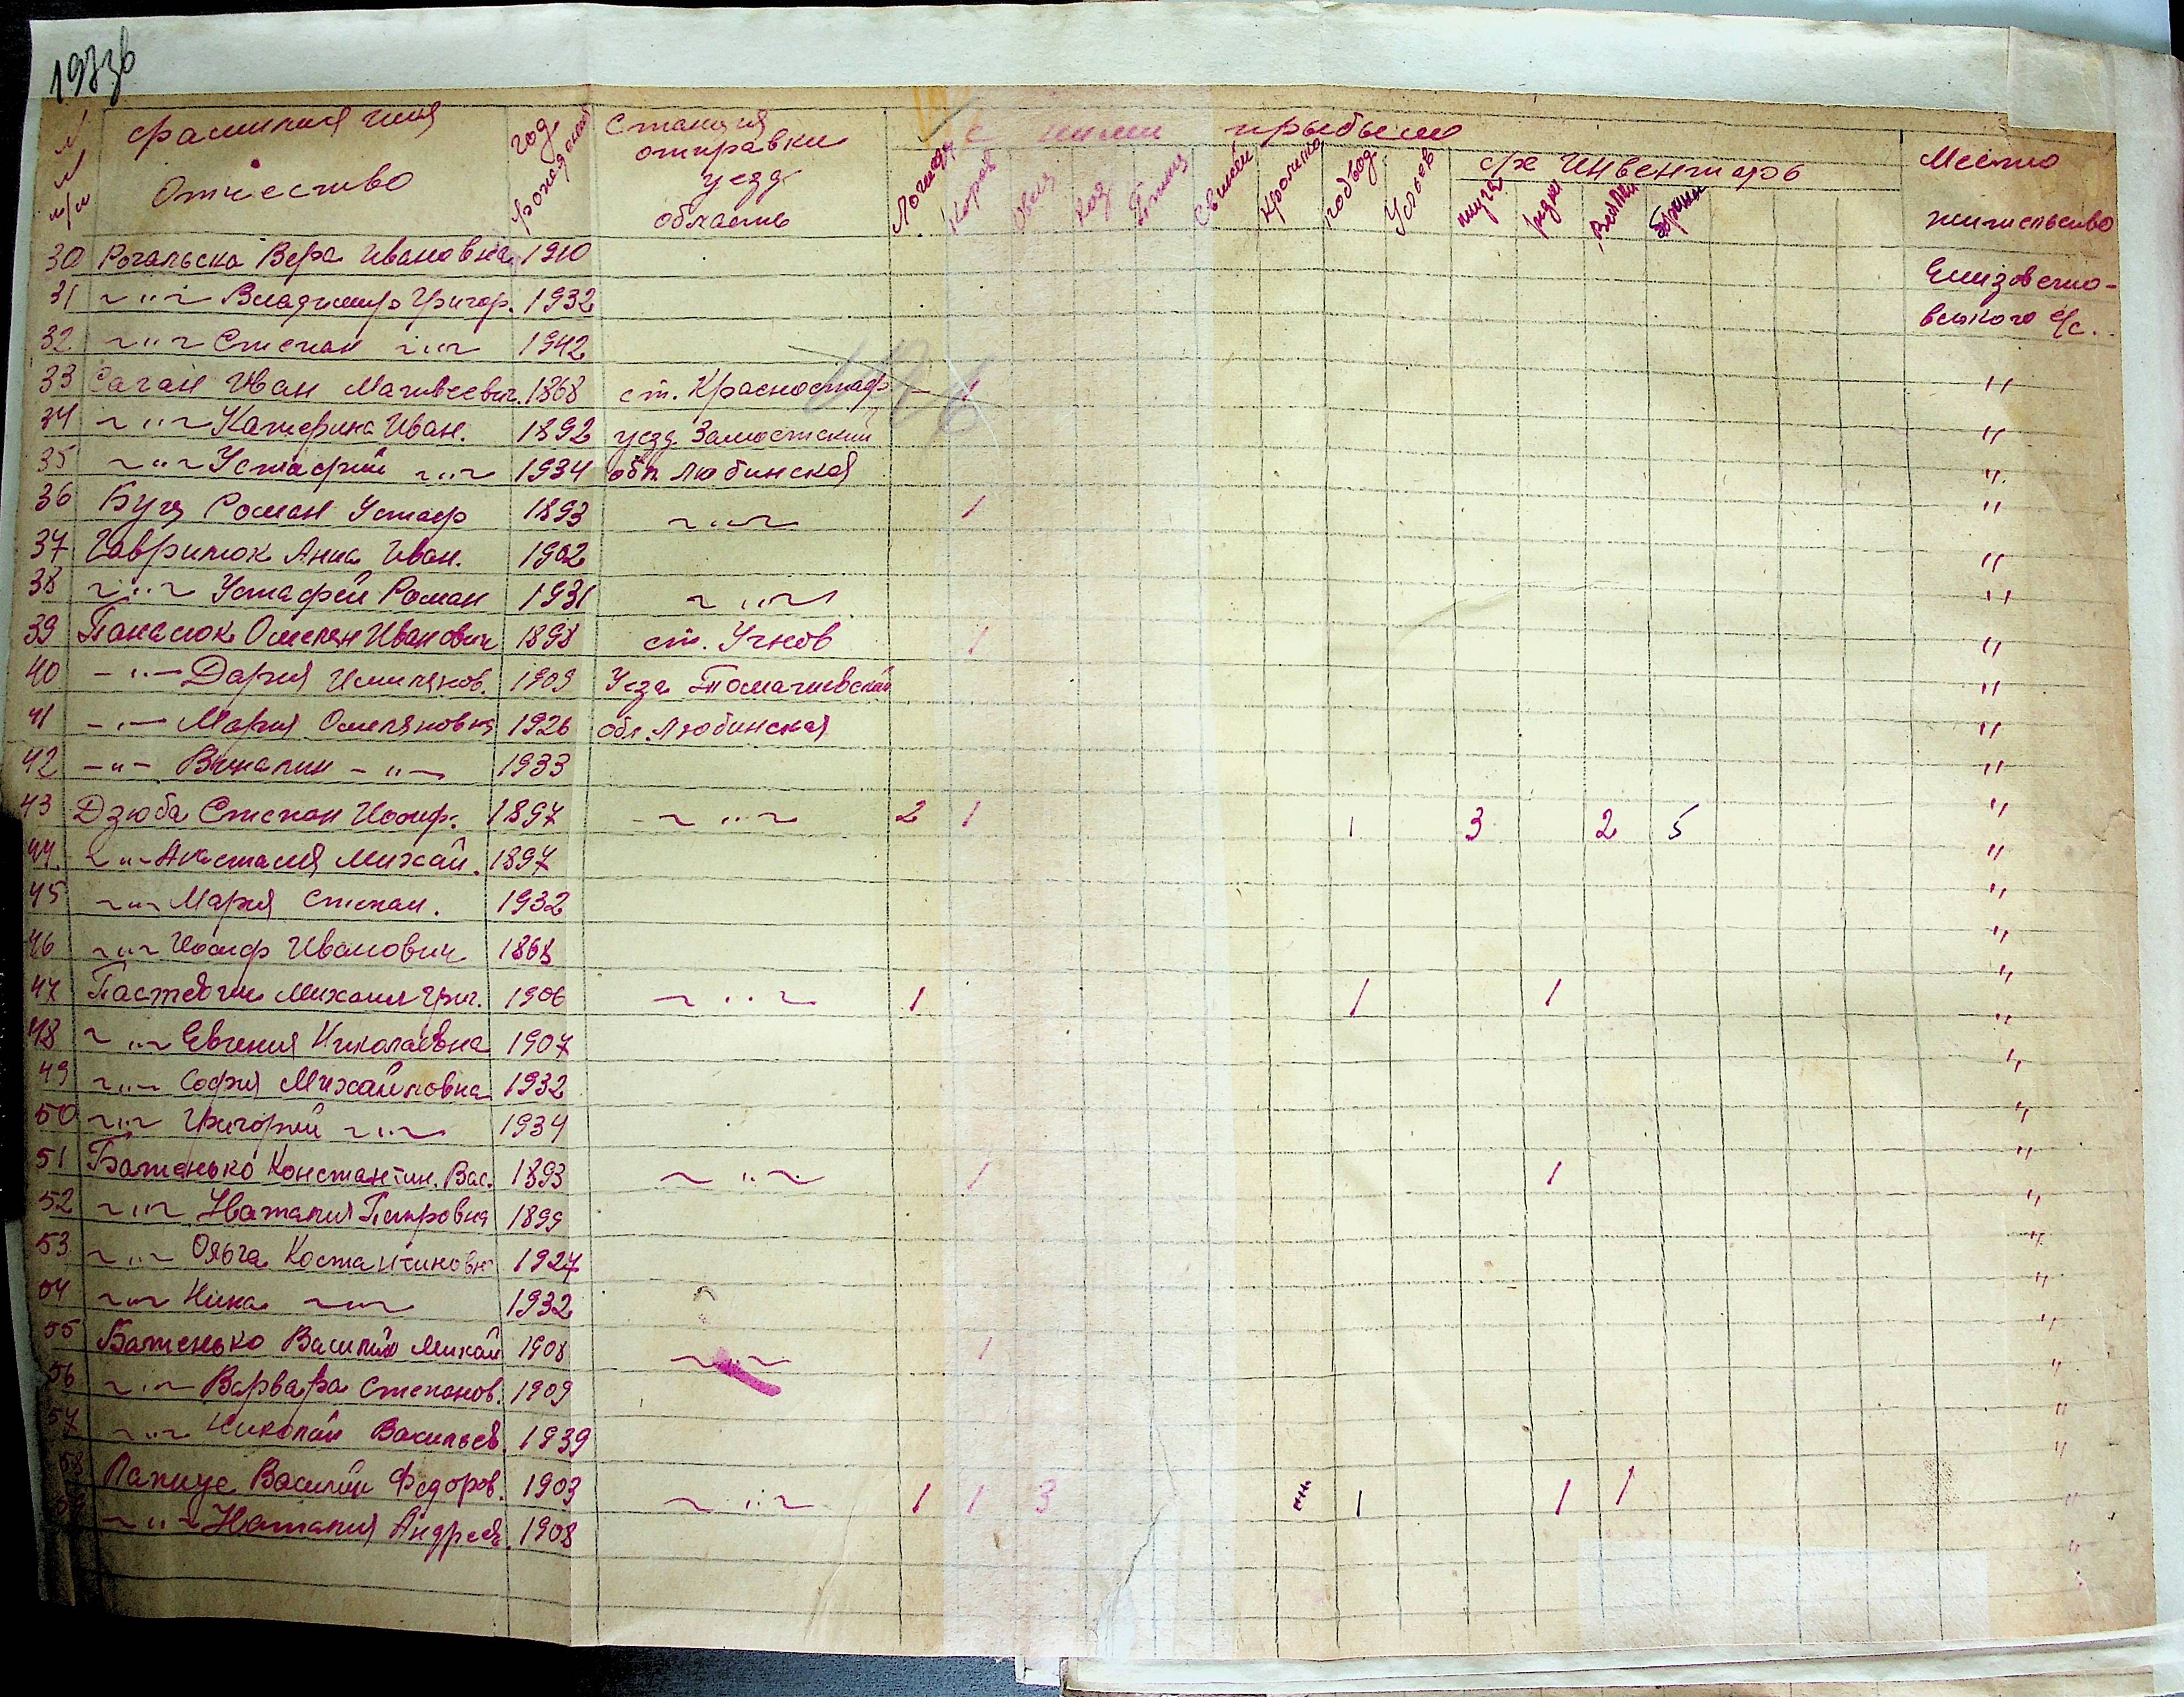 197зв
№ п/п фамилия имя Отчество год рождения Станция отправки уезд область с ними прыбыло Место жительство
Лошадь Коров Овец Коз Птиц Свиней Кролико подвод Ульев с/х инвентарь
плуга Веялки Борони
30 Рогальска Вера Ивановна 1910 Елизовето-
31 ~ " ~ Владимир Григор. 1932 вського с/с.
32 ~ " ~ Степан ~ " ~ 1942
33 Саган Иван Матвеевич. 1868 ст. Красностаф 1 "
34 ~ " ~ Катерина Иван. 1892 уезд. Замостский "
35 ~ " ~ Устафий ~ " ~ 1934 обл. Любинская "
36 Буга Роман Устаф 1893 ~ " ~ 1 "
37 Гаврилюк Анна Иван. 1902 "
38 ~ " ~ Устафей Роман 1931 ~ " ~ "
39 Панасюк Омелян Иванович 1898 ст. Угнов 1 "
40 - " - Дария 1909 Уезд Томашевский "
41 - " - Мария Омеляновна 1926 обл. Любинская "
42 - " - - " - 1933 "
43 Дзюба Степан Иосиф. 1897 ~ " ~ 2 1 1 3 2 5 "
44 ~ " ~ Анастасия Михай. 1897 "
45 ~ " ~ Мария Степан. 1932 "
46 ~ " ~ Иосиф Иванович 1868 "
47 Михаил Григ. 1906 ~ " ~ 1 1 1 "
48 ~ " ~ Евгения Николаевна 1907 "
49 ~ " ~ София Михайловна 1932 "
50 ~ " ~ Григорий ~ " ~ 1934 "
51 Батенько Константин. Вас. 1893 ~ " ~ 1 1 "
52 ~ " ~ Наталия Петровна 1899 "
53 ~ " ~ Ольга Костантиновн 1927 "
54 ~ " ~ Нина ~ " ~ 1932 "
55 Батенько Василий Михай 1908 ~ " ~ 1 "
56 ~ " ~ Варвара Степанов. 1909 "
57 ~ " ~ Николай Васильев. 1939 "
58 Василий Федоров. 1903 ~ " ~ 1 1 3 1 1 1 "
~ " ~ Наталия Андреев. 1908 "